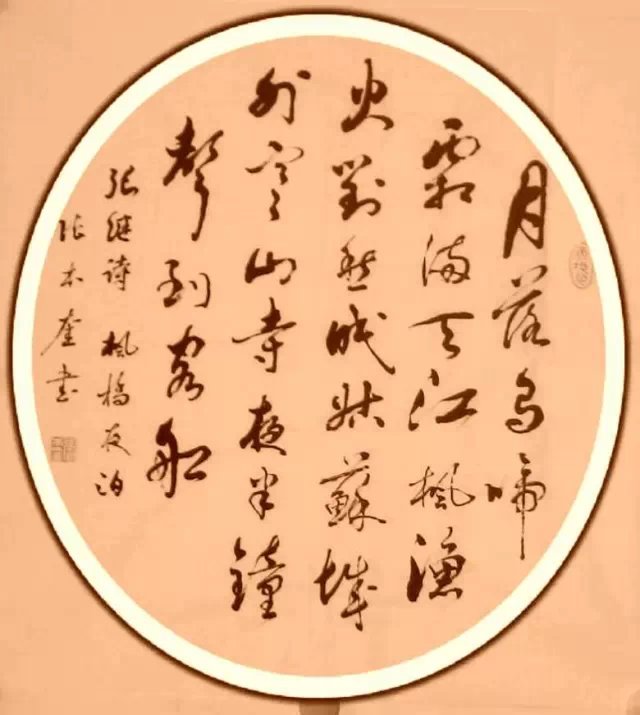 月落烏啼
霜滿天江楓漁
火對愁眠姑蘇城
外寒山寺夜半鐘
聲到客船
張繼詩 楓橋夜泊
張木奎書